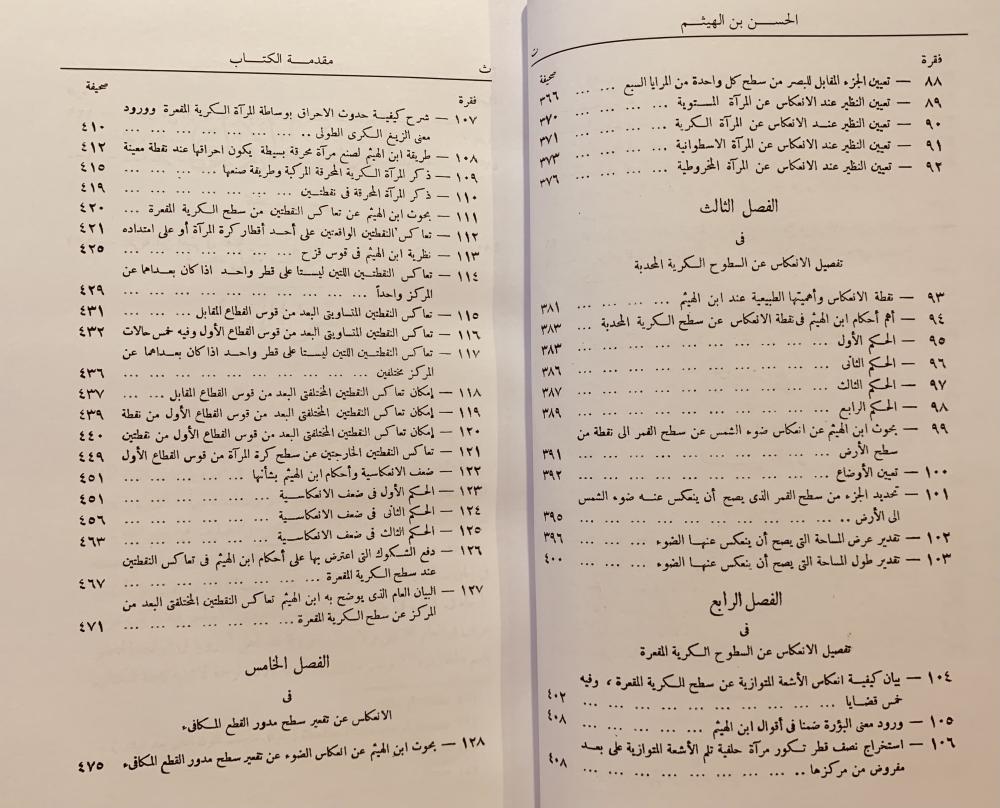 الحسن بن الهيثم
ت
فقرة
صحيفة
٨٨ — تعيين الجزء المقابل للبصر من سطح كل واحدة من المرايا السبع ... ... ٣٦٦
٨٩ — تعيين النظير عند الانعكاس عن المرآة المستوية ... ... ... ... ٣٧٠
٩٠ — تعيين النظير عنــد الانعكاس عن المرآة الكرية ... ... ... ... ٣٧١
٩١ — تعيين النظير عند الانعكاس عن المرآة الاسطوانية ... ... ... ... ٣٧٣
٩٢ — تعيين النظير عند الانعكاس عن المرآة المخروطية ... ... ... ... ٣٧٦
الفصل الثالث
فى
تفصيل الانعكاس عن السطوح الكرية المحدبة
٩٣ — نقطة الانعكاس وأهميتها الطبيعية عند ابن الهيثم ... ... ... ... ٣٨١
٩٤ — أهم أحكام ابن الهيثم فى نقطة الانعكاس عن سطح الكرية المحدبة ... ... ٣٨٣
٩٥ — الحكم الأول ... ... ... ... ... ... ... ... ٣٨٣
٩٦ — الحكم الثانى ... ... ... ... ... ... ... ... ٣٨٦
٩٧ — الحكم الثالث ... ... ... ... ... ... ... ... ٣٨٧
٩٨ — الحكم الرابع ... ... ... ... ... ... ... ... ٣٨٩
٩٩ — بحوث ابن الهيثم عن انعكاس ضوء الشمس عن سطح القمر الى نقطة من
سطح الأرض ... ... ... ... ... ... ... ... ٣٩١
١٠٠ — تعيين الأوضاع ... ... ... ... ... ... ... ... ٣٩٢
١٠١ — تحديد الجزء من سطح القمر الذى يصح أن ينعكس عنــه ضوء الشمس
الى الأرض .. ... ... ... ... ... ... ... ... ٣٩٥
١٠٢ — تقدير عرض المساحة التى يصح أن ينعكس عنهــا الضوء ... ... ... ٣٩٦
١٠٣ — تقدير طول المساحة التى يصح أن ينعكس عنهــا الضوء ... ... ... ٤٠٠
الفصل الرابع
فى
تفصيل الانعكاس عن السطوح الكرية المقعرة
١٠٤ — بيان كيفية انعكاس الأشعة المتوازية عن سطح الكرية المقعرة ، وفيه
خمس قضايا ... ... ... ... ... ... ... ... ٤٠٢
١٠٥ — ورود معنى البؤرة ضمنا فى أقوال ابن الهيثم ... ... ... ... ٤٠٨
١٠٦ — استخراج نصف قطر تكور مرآة حلقية تلم الأشعة المتوازية على بعد
مفروض من مركزها .. ... ... ... ... ... ... ... ٤٠٨
مقدمــة الكتــاب
ث
فقرة
صحيفة
١٠٧ — شرح كيفيــة حدوث الاحراق بوساطة المرآة الكرية المقعرة وورود
معنى الزيغ الكرى الطولى .. ... ... ... ... ... ... ... ٤١٠
١٠٨ — طريقة ابن الهيثم لصنع مرآة محرقة بسيطة يكون احراقها عند نقطة معينة ٤١٢
١٠٩ — ذكر المرآة الكرية المحرقة المركبة وطريقة صنعها ... ... ... ... ٤١٥
١١٠ — ذكر المرآة المحرقة فى نقطتــين ... ... ... ... ... ... ٤١٩
١١١ — بحوث ابن الهيثم عن تعاكس النقطتين من سطح الكرية المقعرة ... ٤٢٠
١١٢ — تعاكس النقطتين الواقعتين على أحــد أقطار كرة المرآة أو على امتداده ٤٢١
١١٣ — نظرية ابن الهيثم فى قوس قزح ... ... ... ... ... ... ٤٢٥
١١٤ — تعاكس النقطتــين اللتين ليستا على قطر واحــد اذا كان بعــداهما عن
المركز واحداً ... ... ... ... ... ... ... ... ٤٢٩
١١٥ — تعاكس النقطتين المتساويتى البعد من قوس القطاع المقابل ... ... ... ٤٣١
١١٦ — تعاكس النقطتين المتساويتى البعد من قوس القطاع الأول وفيه خمس حالات ٤٣٢
١١٧ — تعاكس النقطتــين اللتين ليستا على قطر واحــد اذا كان بعــداهما عن
المركز مختلفين ... ... ... ... ... ... ... ... ٤٣٦
١١٨ — إمكان تعاكس النقطتين المختلفتى البعد من قوس القطاع المقابل ... ... ٤٣٧
١١٩ — إمكان تعاكس النقطتين المختلفتى البعد من قوس القطاع الأول من نقطة ٤٣٩
١٢٠ — إمكان تعاكس النقطتين المختلفتى البعد من قوس القطاع الأول من نقطتين ٤٤٠
١٢١ — تعاكس النقطتين الخارجتين عن سطح كرة المرآة من قوس القطاع الأول ٤٤٩
١٢٢ — ضعف الانعكاسية وأحكام ابن الهيثم بشأنها ... ... ... ... ٤٥١
١٢٣ — الحكم الأول فى ضعف الانعكاســية ... ... ... ... ... ٤٥١
١٢٤ — الحكم الثانى فى ضعف الانعكاســية ... ... ... ... ... ٤٥٦
١٢٥ — الحكم الثالث فى ضعف الانعكاسية ... ... ... ... ... ٤٦٣
١٢٦ — دفع الشكوك التى اعترض بها على أحكام ابن الهيثم فى تعاكس النقطتين
عند سطح الكرية المقعرة ... ... ... ... ... ... ... ٤٦٧
١٢٧ — البيان العام الذى يوضح به ابن الهيثم تعاكس النقطتين المختلفتى البعد من
المركز عن سطح الكرية المقعرة ... ... ... ... ... ... ٤٧١
الفصل الخامس
فى
الانعكاس عن تقعير سطح مدور القطع المكافىء
١٢٨ — بحوث ابن الهيثم عن انعكاس الضوء عن تقعير سطح مدور القطع المكافىء ٤٧٥